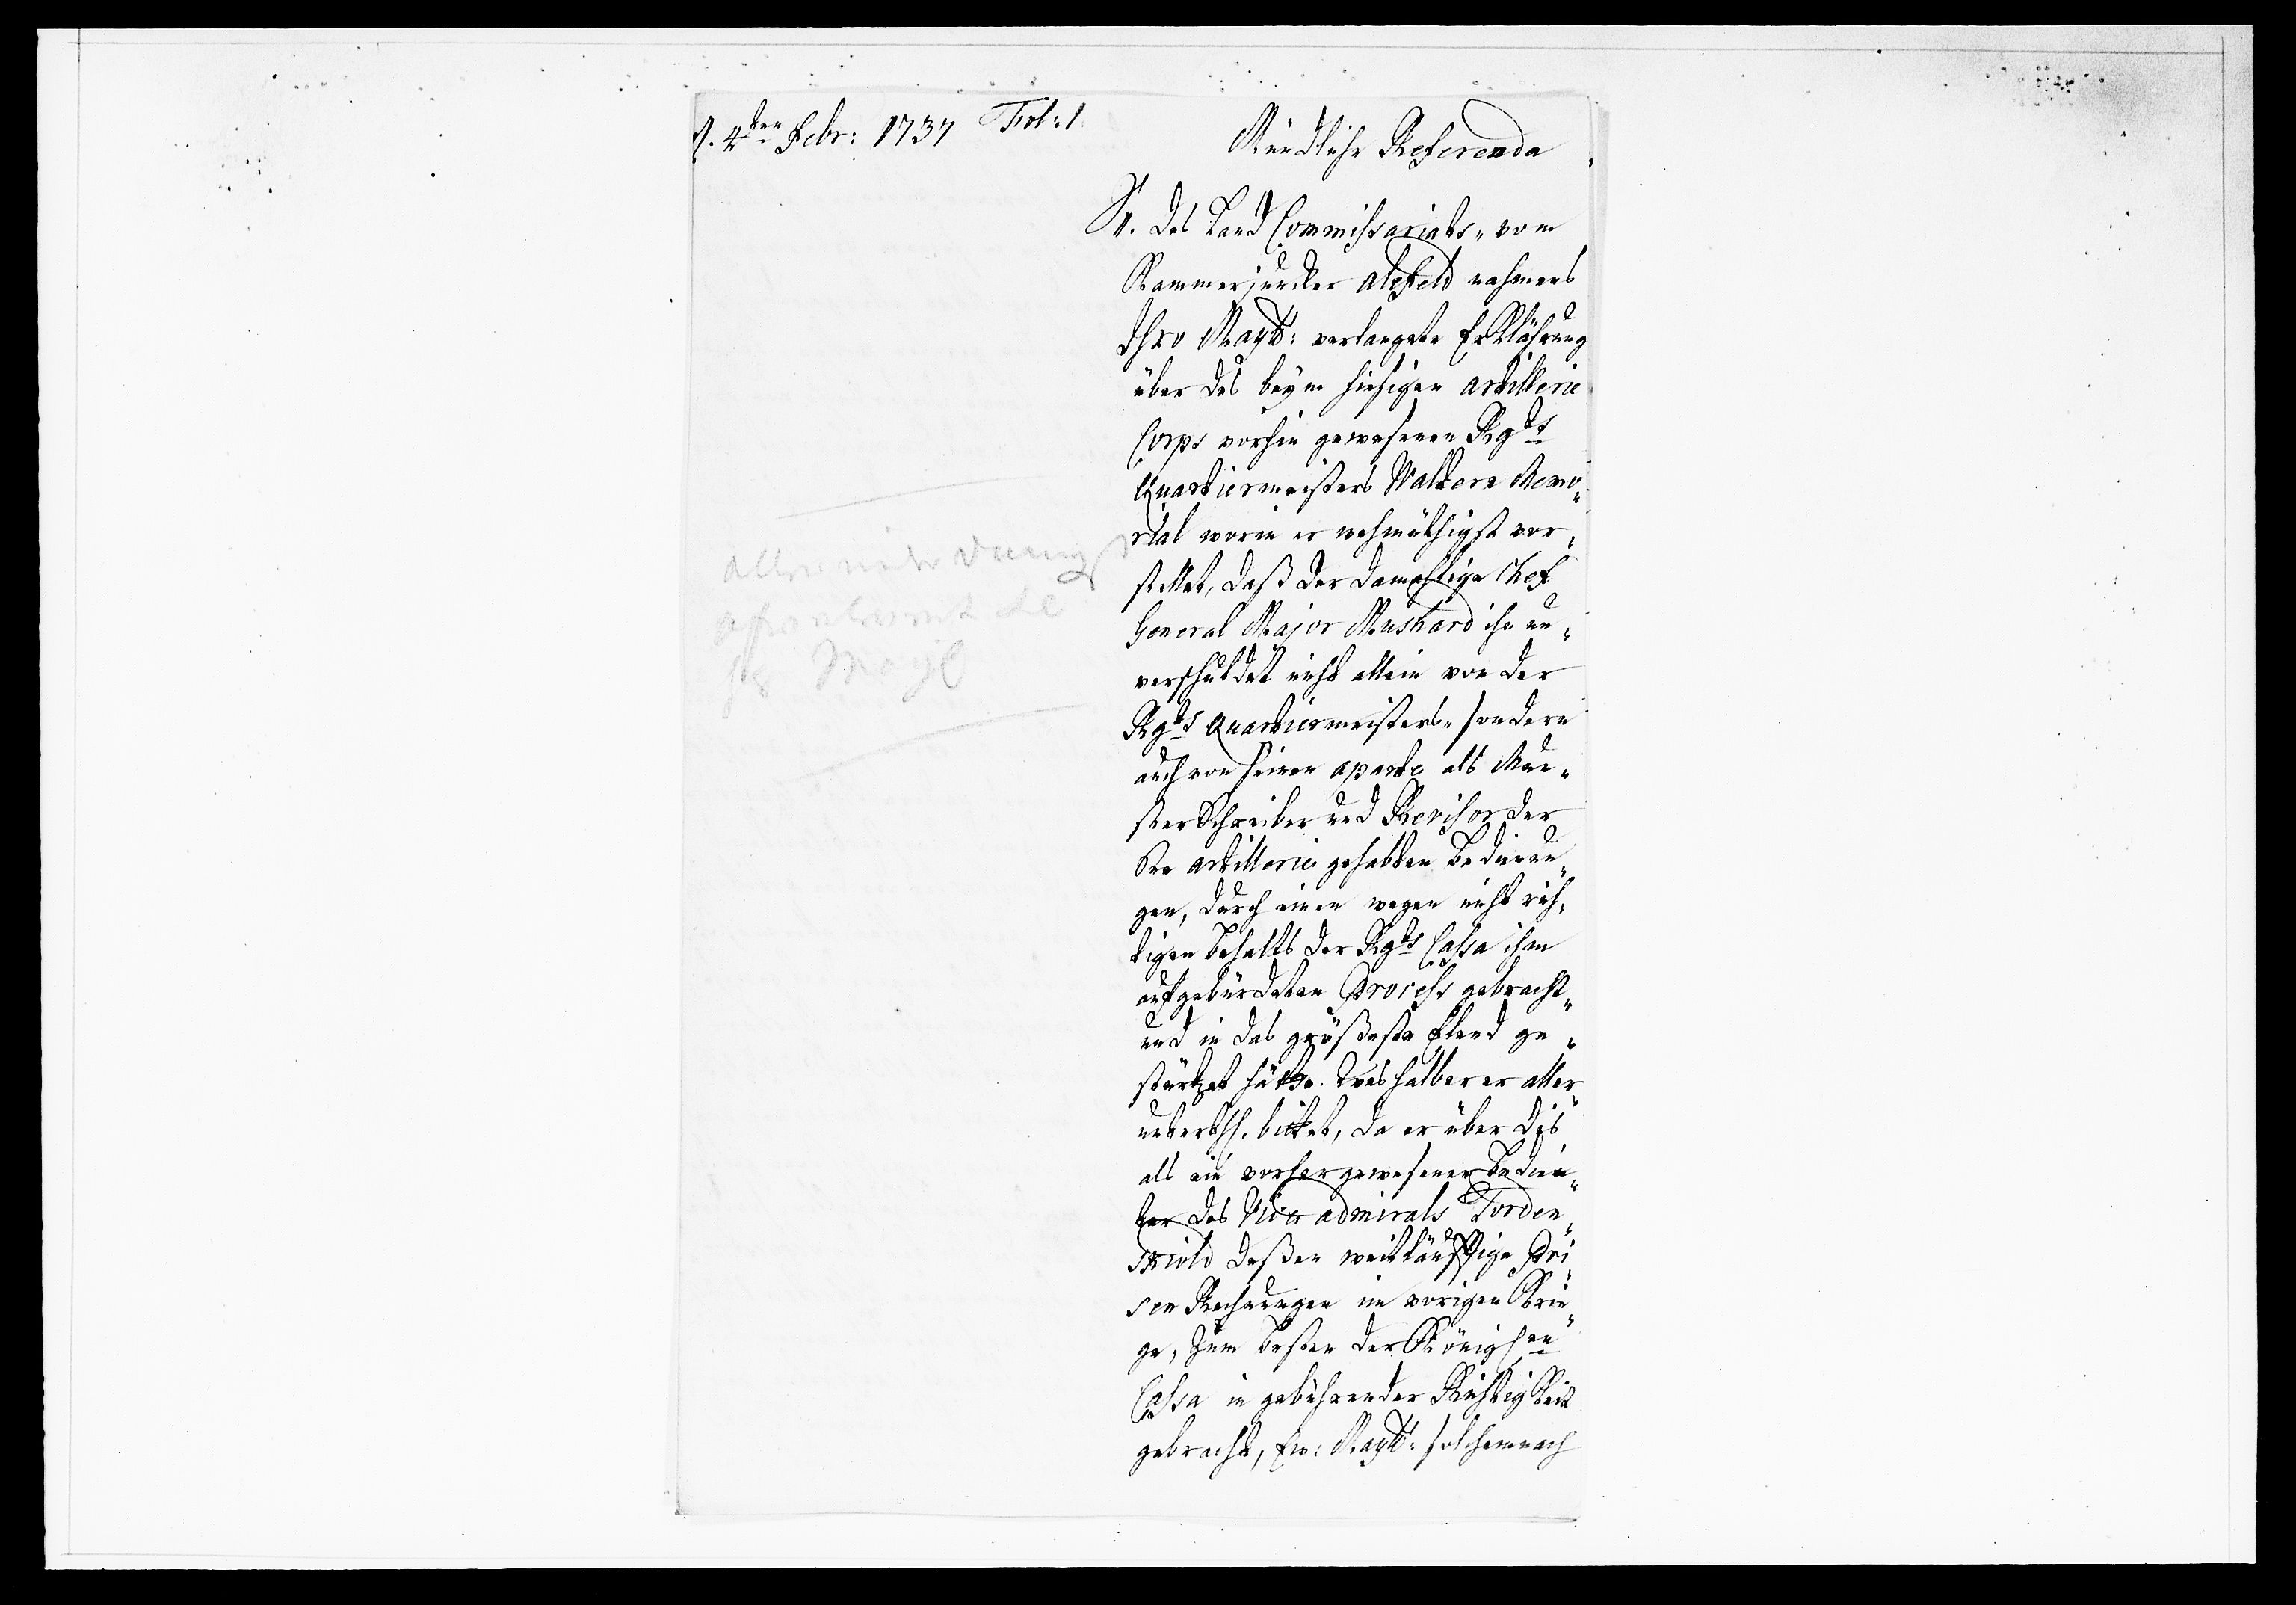 d. 4ten Febr: 1737 Fol: 1.
Mündliche Referenda
1. Des Land Commissariats, vom
Kammerjuncker alefeld nahmens
Ihro Maytt: verlangete Erklährung
über des beym hiesigen artillerie
Corps vorhin gewesenen Rgts
Quartiermeisters Waltern Memo„
rial worin er wehmüthigst vor„
stellet, daß der damahlige Chef
General Major Mushard ihn un„
verschuldet nicht allein von der
Rgts Quartiermeisters„ sondern
auch von seinen aparte als Mun„
ster Schreiber und Revisor der
See artillerie gehabten Bedienun„
gen, durch einen wegen nicht rich„
tigen Behalts der Rgts Cassa ihm
aufgebürdeten Process gebracht„
und in das gröste Elend ge„
stürtzet hätte. Weshalber er aller„
unterthl. bittet, da er über dis
als ein vorhergewesener Bedien„
ter des Vice admirals Torden„
skiold deßen weitläufftige Pri„
sen Rechnungen im vorigen Krie„
ge, zum besten der Königlen
Cassa in gebührender Richtigkeit
gebracht, Ew: Maytt: solchemnach